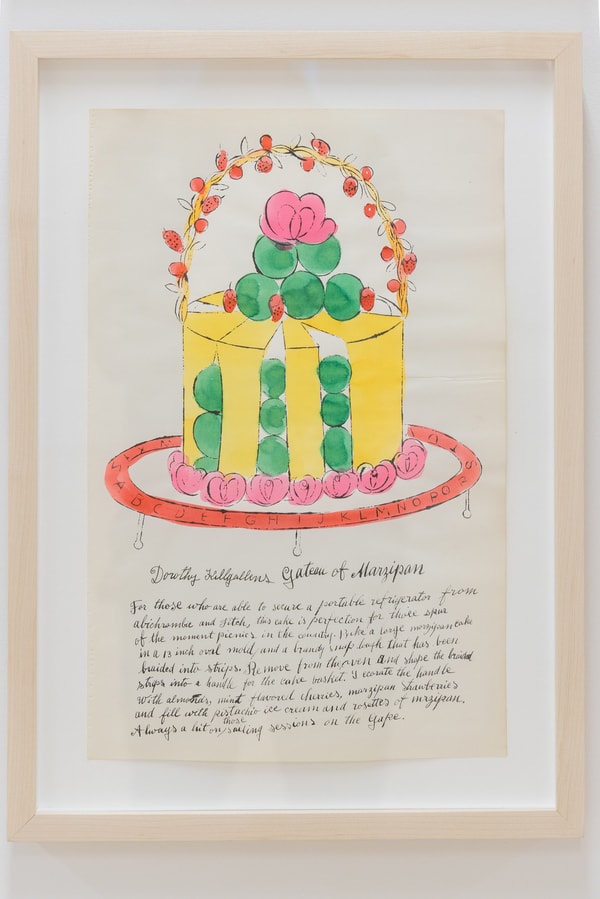 A B C D E F G H I J K L M N O P Q R S
Dorothy Killgallens Gateau of Marzipan
For those who are able to secure a portable refrigerator from
abichrombie and fitch, this cake is perfection for those spur
of the moment picnics in the country. Bake a large marzipan cake
in a 13 inch oval mold, and a brandy snap lough that has been
braided into strips. Remove from the oven and shape the braided
strips into a handle for the cake basket. Decorate the handle
with almonds, mint flavored cherries, marzipan strawberries
and fill with pistachio ice cream and rosettes of mrzipan.
Always a hit on those sailing sessions on the Gape.